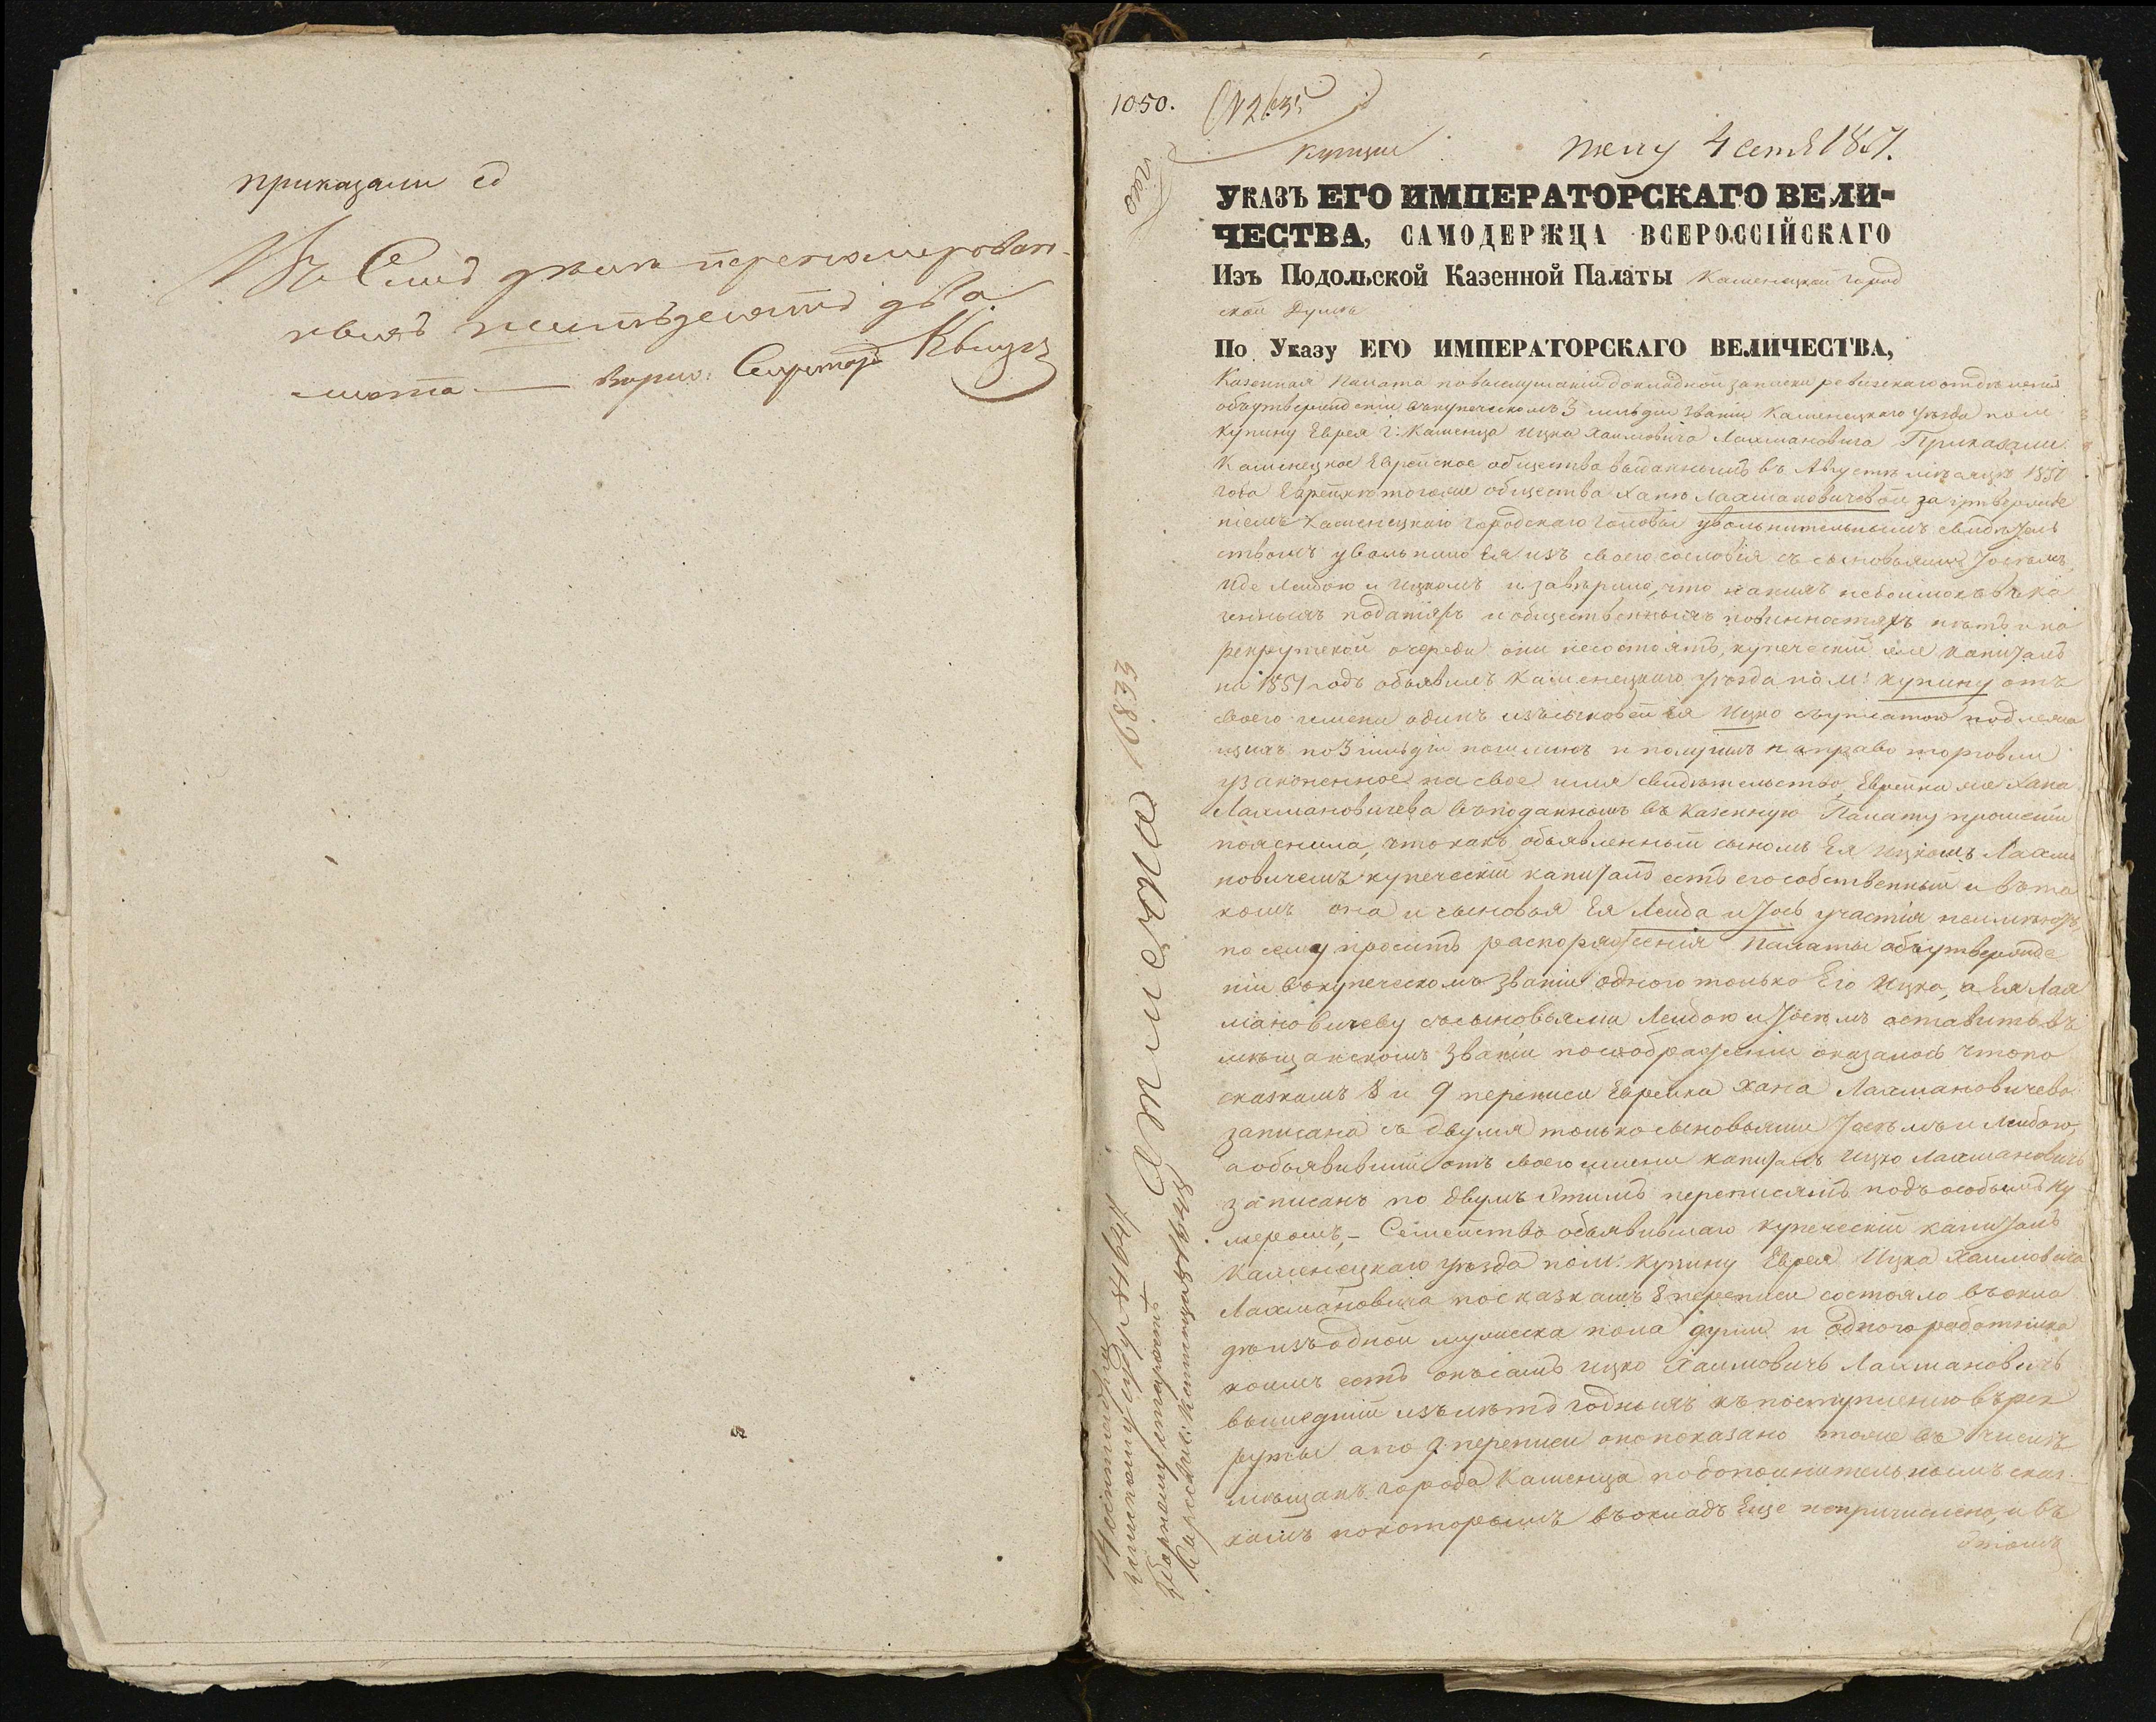 приказали
Въ Семъ дѣлѣ перенумерован-
ныхъ пятьдесятъ два
листа. — Секретарь
1050.
4 сентя 1851.
Указъ ЕГО ИМПЕРАТОРСКАГО ВЕЛИ-
ЧЕСТВА, САМОДЕРЖЦА ВСЕРОССІЙСКАГО
Изъ Подольской Казенной Палаты Каменецкой город
ской Думѣ
По Указу ЕГО ИМПЕРАТОРСКАГО ВЕЛИЧЕСТВА,
Казенная Палата по выслушаніи докладной записки ревизскаго отдѣленія
объ утвержденіи въ купеческомъ 3 гильдіи званіи Каменецкаго уѣзда по м:
Купину Еврея г: Каменца Ицка Хаимовича Лахмановича Приказали
Каменецкое Еврейское общество выданнымъ въ Августѣ мѣсяцѣ 1850
года Еврейкѣ того же общества Ханѣ Лахмановичевой за утвержде
ніемъ Каменецкаго городскаго Головы увольнительнымъ свидѣтель
ствомъ увольнило Ея изъ своего сословія съ сыновьями Іосемъ,
Лейбою и Ицкомъ и завѣрило, что на нихъ недоимокъ въ ка
зенныхъ податяхъ и общественныхъ повинностяхъ нѣтъ и на
рекрутской очереди они не состоятъ, купеческій же капиталъ
на 1851 годъ объявилъ Каменецкаго уѣзда по м: Купину отъ
своего имени одинъ изъ сыновей Ея Ицко съ уплатою подлежа
щихъ по 3 гильдіи пошлинъ и получилъ на право торговли
узаконенное на свое имя свидѣтельство, Еврейка же Хана
Лахмановичева въ поданномъ въ Казенную Палату прошеніи
пояснила, что какъ объявленный сыномъ Ея Ицкомъ Лахма
новичемъ купеческій капиталъ есть его собственный и въ та
комъ она и сыновья Ея Лейба и Іось участія не имѣютъ,
по сему проситъ распоряженія Палаты объ утвержде
ніи въ купеческомъ званіи одного только Его Ицка, а Ея Лах
мановичеву съ сыновьями Лейбою и Іосемъ оставить въ
мѣщанскомъ званіи по соображеніи оказалось что по
сказкамъ 8 и 9 переписи Еврейка Хана Лахмановичева
записана съ двумя только сыновьями Іосемъ и Лейбою,
а объявившій отъ своего имени капиталъ Ицко Лахмановичъ
записанъ по двумъ этимъ переписямъ подъ особымъ ну
меромъ, – Семейство объявившаго купеческій капиталъ
Каменецкаго уѣзда по м: Купину Еврея Ицка Хаимовича
Лахмановича по сказкамъ 8 переписи состояло въ окла
дѣ изъ одной мужеска пола души и одного работника
коимъ есть онъ самъ Ицко Хаимовичъ Лахмановичъ
вышедшій изъ лѣтъ годныхъ къ поступленію въ рек
руты а по 9 переписи оно показано тоже въ числѣ
мѣщанъ города Каменца по дополнительнымъ сказ
камъ по которымъ въ окладъ еще не причислено, и въ
этомъ
отъ
Отмѣтка 16833
14 сентября